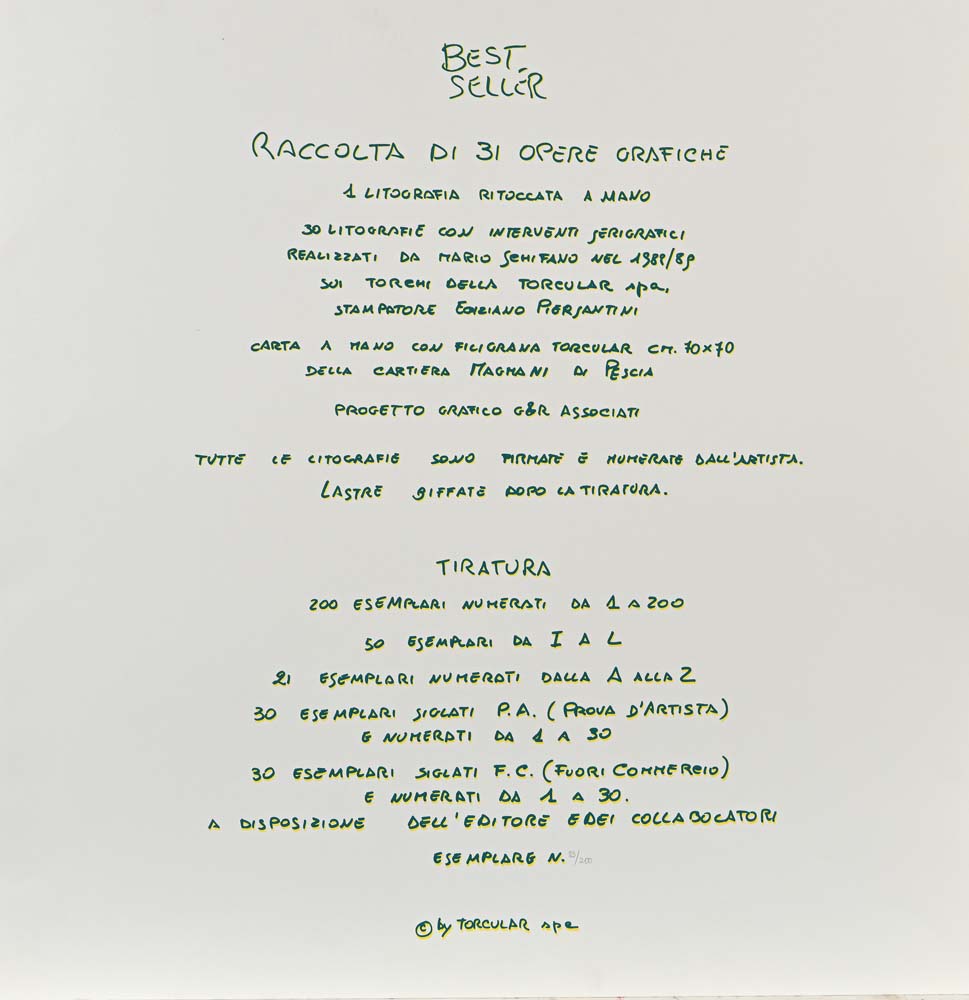 BEST
SELLER
RACCOLTA DI 31 OPERE GRAFICHE
1 LITOGRAFIA RITOCCATA A MANO
30 LITOGRAFIE CON INTERVENTI SERIGRAFICI
REALIZZATI DA MARIO SCHIFANO NEL 1988/89
SUI TORCHI DELLA TORCULAR spa,
STAMPATORE EDIZIANO PIERSANTINI
CARTA A MANO CON FILIGRANA TORCULAR CM. 70x70
DELLA CARTIERA MAGNANI DI PESCIA
PROGETTO GRAFICO G&R ASSOCIATI
TUTTE LE LITOGRAFIE SONO FIRMATE E NUMERATE DALL'ARTISTA.
LASTRE BIFFATE DOPO LA TIRATURA.
TIRATURA
200 ESEMPLARI NUMERATI DA 1 A 200
50 ESEMPLARI DA I A L
21 ESEMPLARI NUMERATI DALLA A ALLA Z
30 ESEMPLARI SIGLATI P.A. (PROVA D'ARTISTA)
E NUMERATI DA 1 A 30
30 ESEMPLARI SIGLATI F.C. (FUORI COMMERCIO)
E NUMERATI DA 1 A 30.
A DISPOSIZIONE DELL'EDITORE E DEI COLLABOCATORI
ESEMPLARE N. /200
© by TORCULAR spa